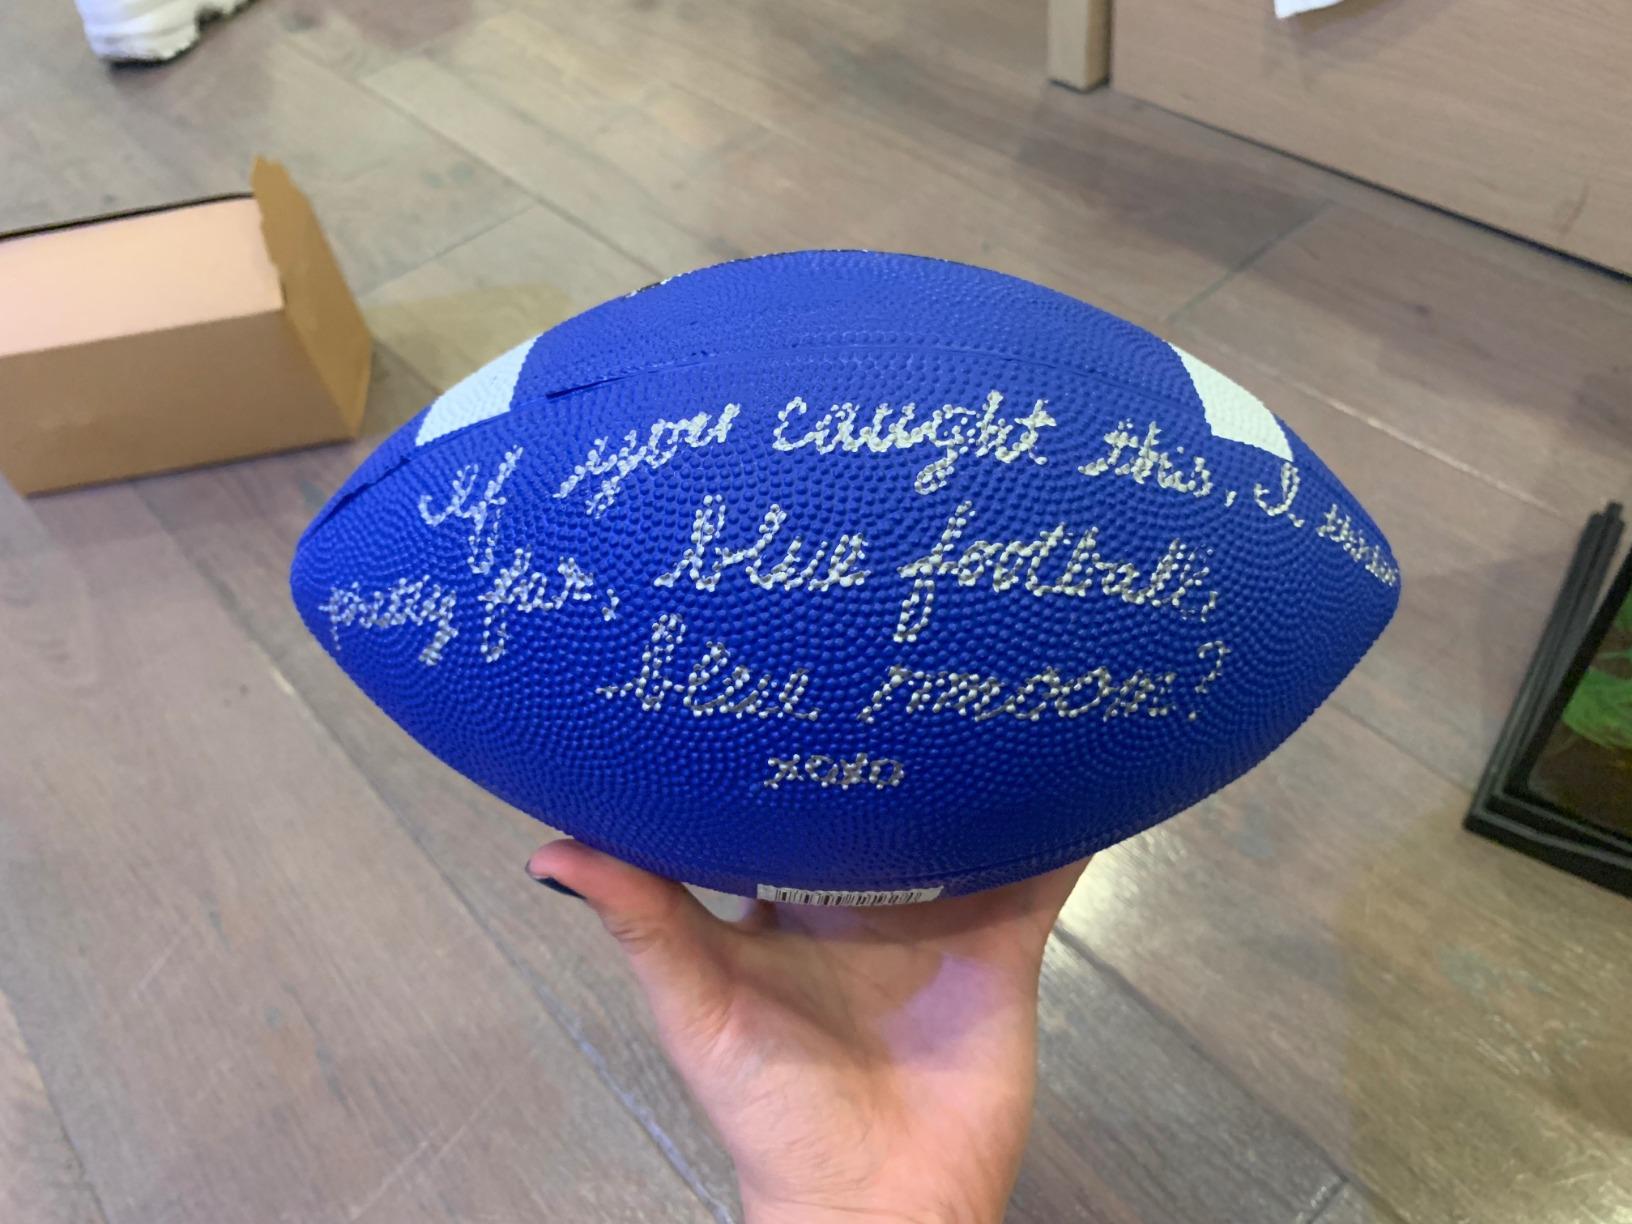 If you caught this, I
pray for, blue football,
blue moon?
xoxo